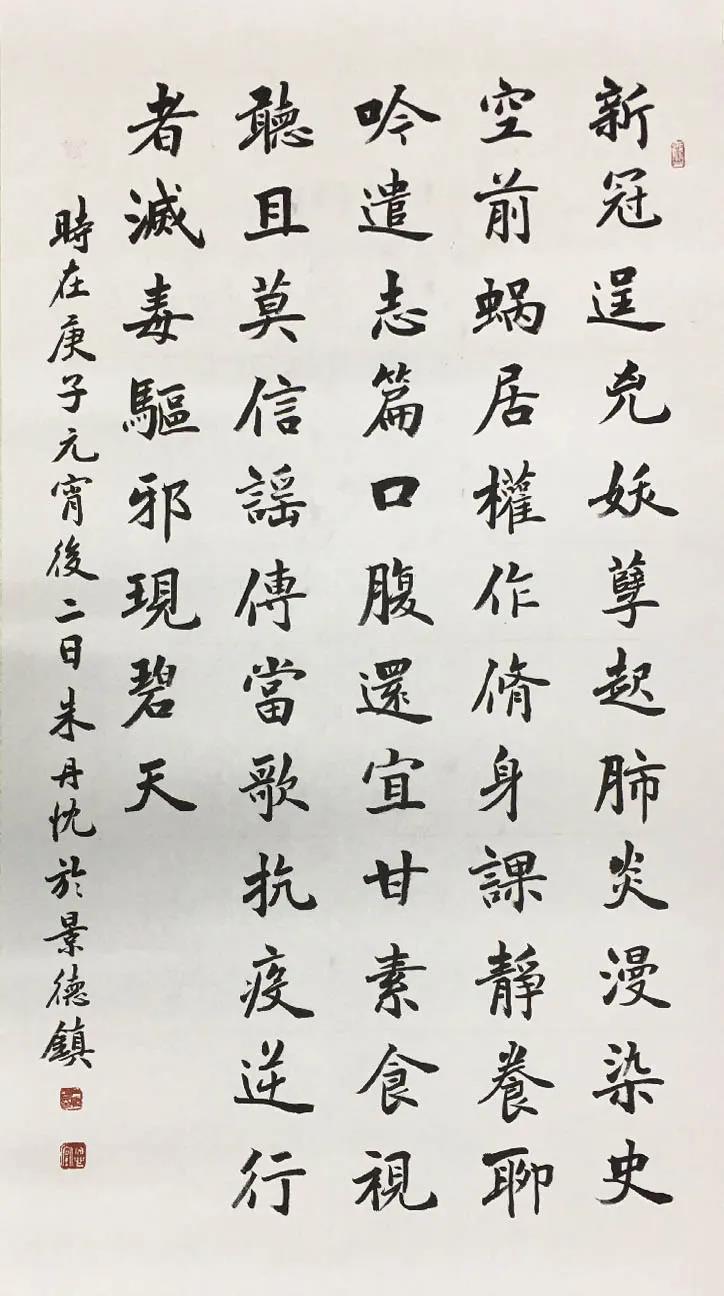 新冠逞兇妖孽起肺炎漫染史
空前蝸居權作脩身課靜養聊
吟遣志篇口腹還宜甘素食視
聽且莫信謡傳當歌抗疫逆行
者滅毒驅邪現碧天
時在庚子元宵後二日朱丹忱於景德鎮